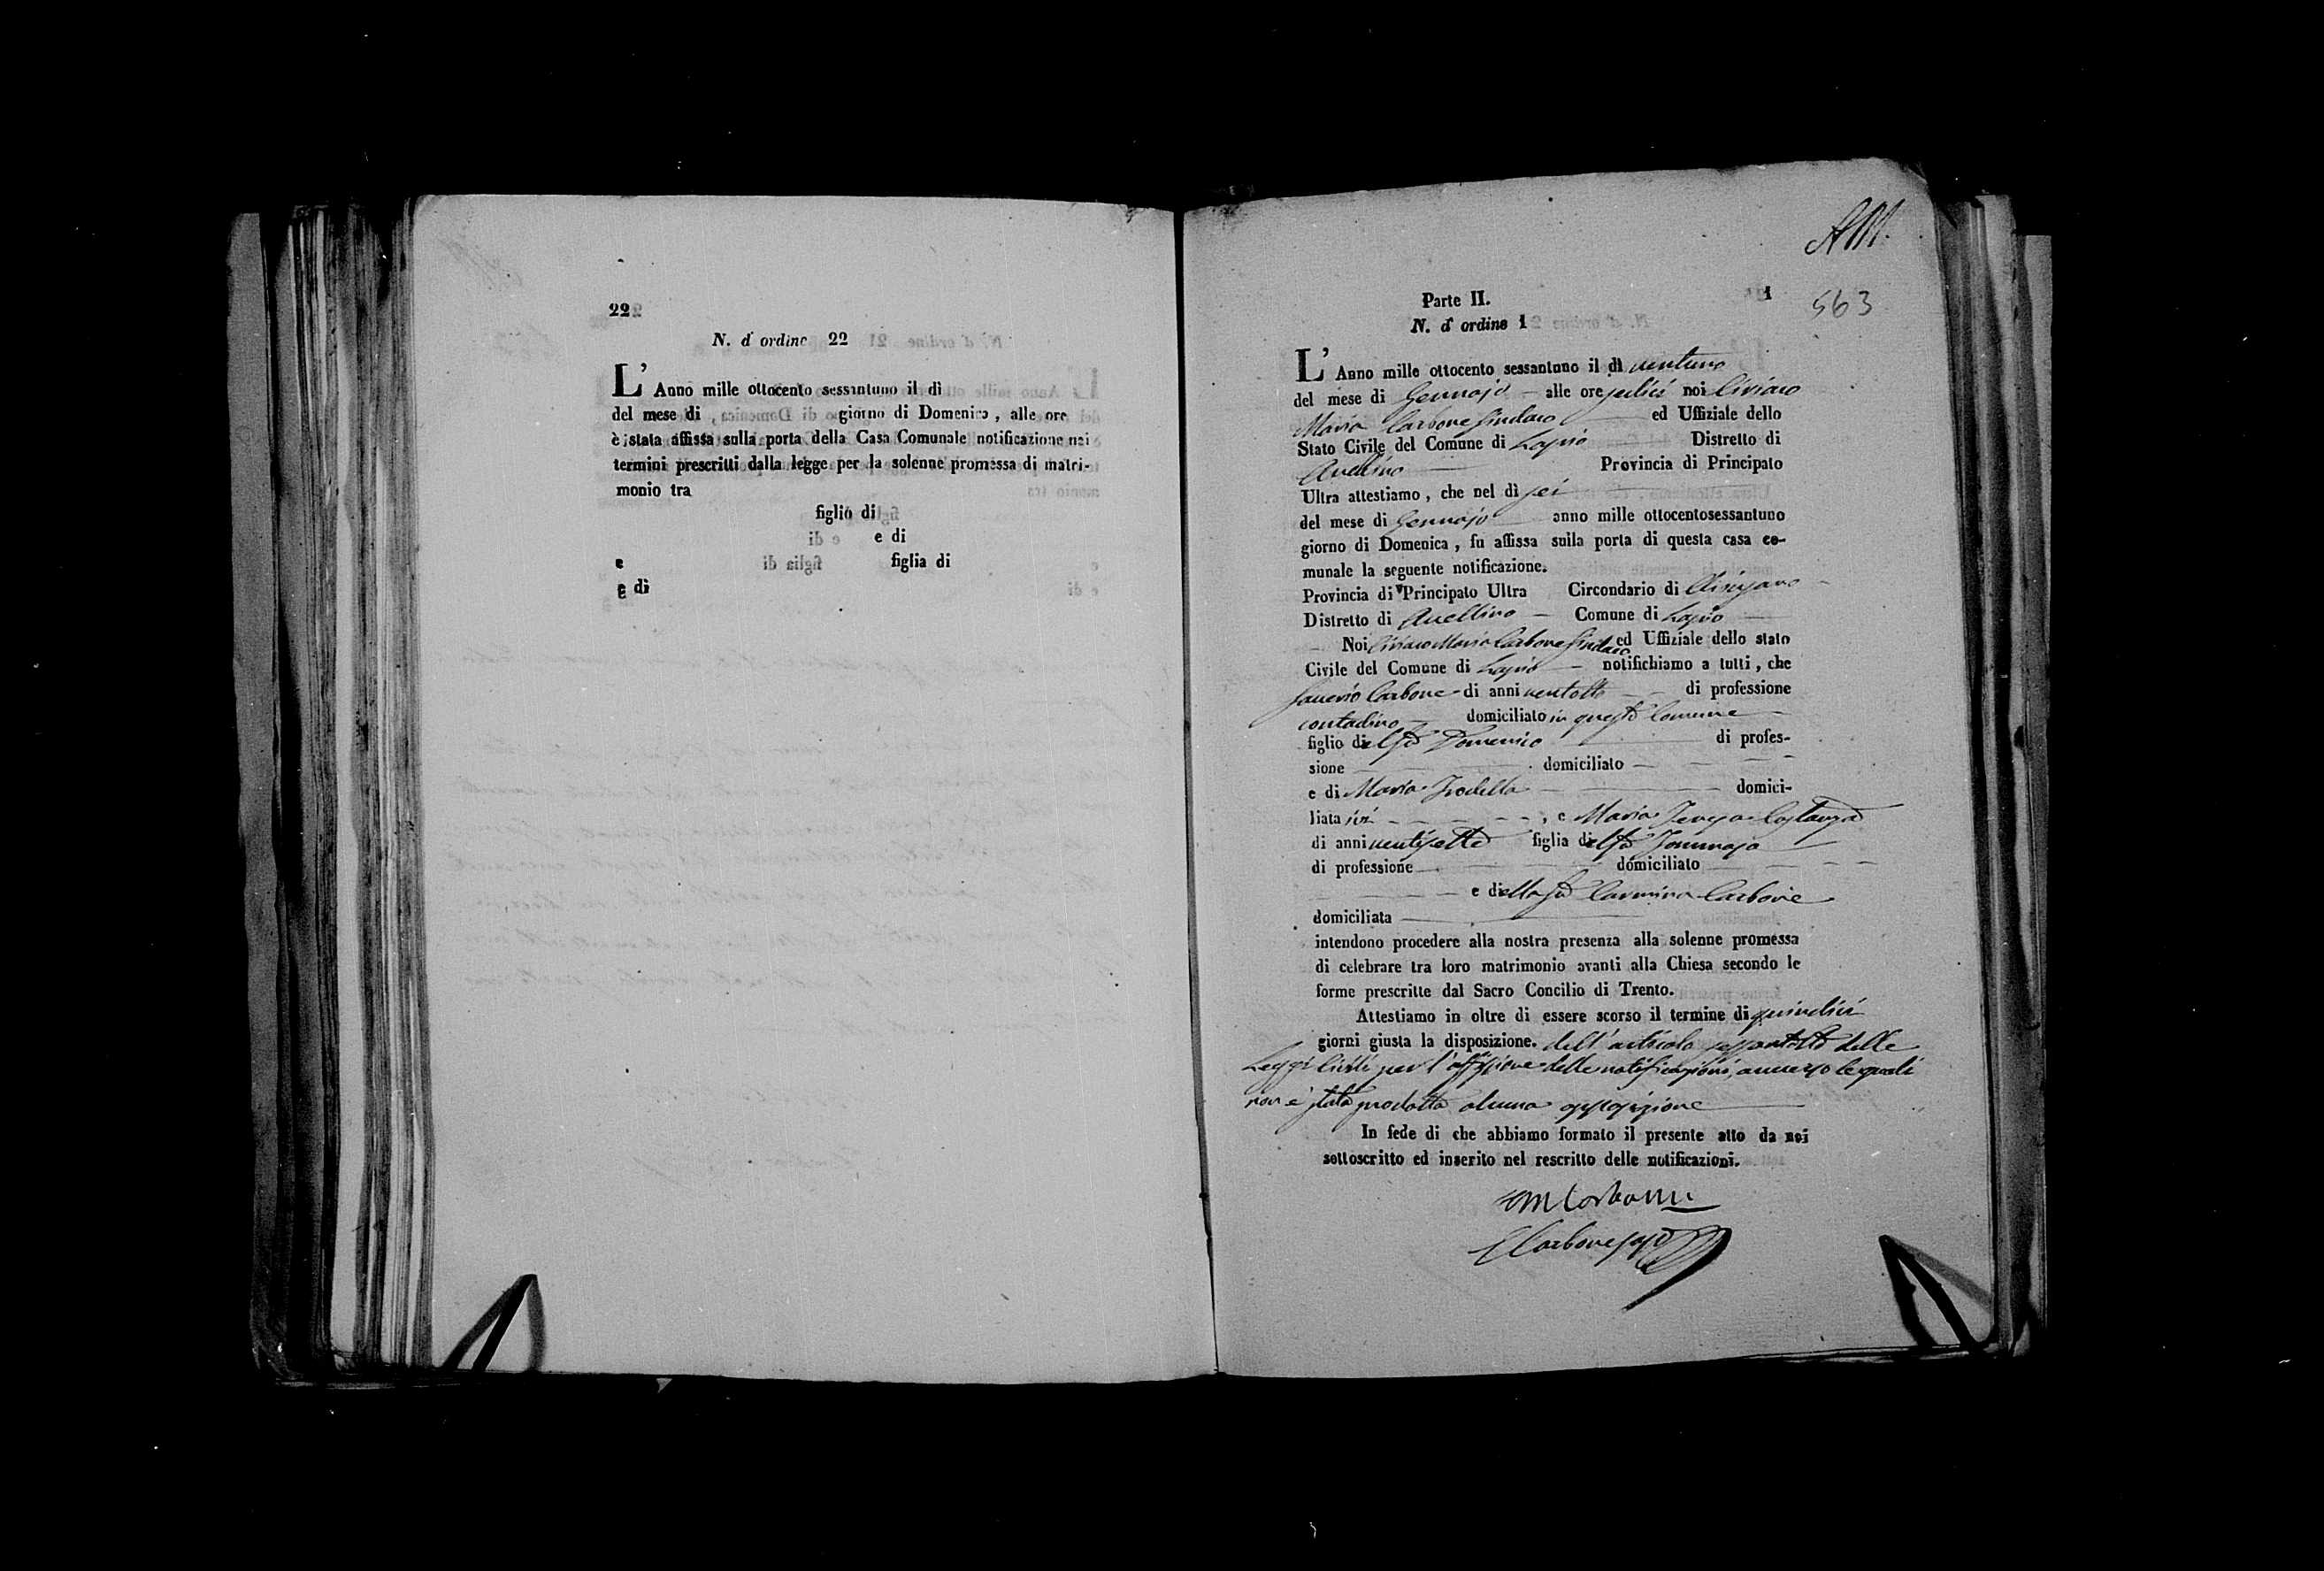 22
N. d' ordine 22
L' Anno mille ottocento sessantuno il dì
del mese di giorno di Domenica , alle ore
è stata affissa sulla porta della Casa Comunale notificazione nei
termini prescritti dalla legge per la solenne promessa di matri-
monio tra
figlio di
e di
e figlia di
e dì
563
Parte II. 1
N. d' ordine 1
L' Anno mille ottocento sessantuno il dì ventuno
del mese di Gennajo alle ore sedici noi Ciriaco
Maria Carbone Sindaco ed Uffiziale dello
Stato Civile del Comune di Lapio Distretto di
Avellino Provincia di Principato
Ultra attestiamo , che nel dì sei
del mese di Gennajo anno mille ottocentosessantuno
giorno di Domenica , fu affissa sulla porta di questa casa co-
munale la seguente notificazione.
Provincia di Principato Ultra Circondario di
Distretto di Avellino Comune di Lapio
Noi Ciriaco Maria Carbone Sindaco ed Uffiziale dello stato
Civile del Comune di Lapio notifichiamo a tutti , che
Saverio Carbone di anni ventotto di professione
contadino domiciliato in questo Comune
figlio di Domenico di profes-
sione domiciliato
e di Maria domici-
liata ivi , e Maria Teresa Costanza
di anni ventisette figlia del fu Tommaso
di professione domiciliato
e della fu Carmina Carbone
domiciliata
intendono procedere alla nostra presenza alla solenne promessa
di celebrare tra loro matrimonio avanti alla Chiesa secondo le
forme prescritte dal Sacro Concilio di Trento.
Attestiamo in oltre di essere scorso il termine di quindici
giorni giusta la disposizione. dell' articolo sessantotto delle
Leggi Civili per l' affissione delle notificazioni, avverso le quali
non è stata prodotta alcuna opposizione
In fede di che abbiamo formato il presente atto da noi
sottoscritto ed inserito nel rescritto delle notificazioni.